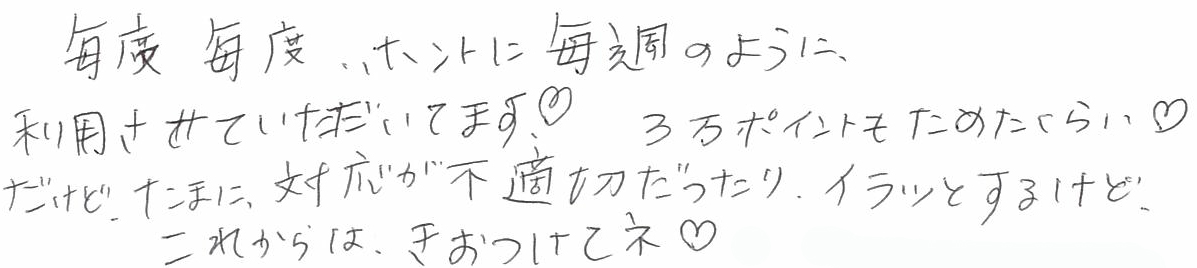 毎度 毎度...ホントに 毎週のように、
利用させていただいてます。♡ 3万ポイントもためたくらい♡
だけど、たまに、対応が不適切だったり、イラッとするけど、
これからは、きおつけてネ♡